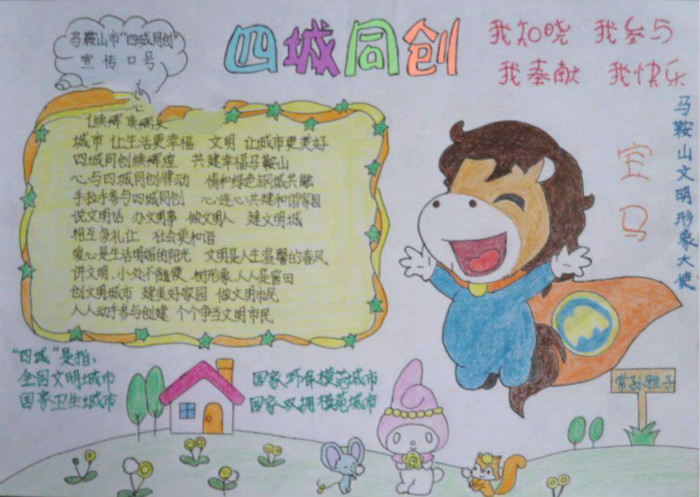 马鞍山市"四城同创"
宣传口号
四城同创
我知晓 我参与
我奉献 我快乐
城市 让生活更幸福 文明 让城市更美好
四城同创续辉煌 共建幸福马鞍山
心与四城同创律动 情和绿色钢城共融
手拉手参与四城同创 心连心共建和谐家园
说文明话 办文明事 做文明人 建文明城
相互多礼让 社会更和谐
爱心是生活明媚的阳光 文明是人生温馨的春风
讲文明,小处不随便 树形象,人人是窗口
创文明城市 建美好家园 做文明市民
人人动手参与创建 个个争当文明市民
"四城"是指:
全国文明城市
国家卫生城市
国家环保模范城市
国家双拥模范城市
马鞍山文明形象大使
宝马